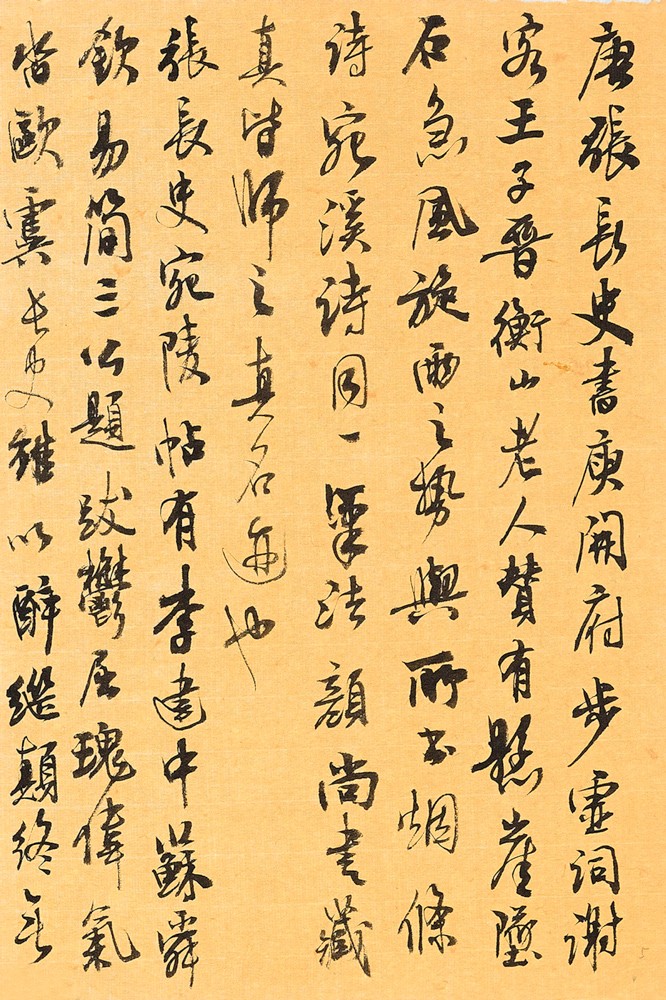 唐張長史書庾開府步虛詞謝
客王子晉衡山老人贊有懸崖墜
石急風旋雨之勢與所書煙條
詩宛溪詩同一筆法顏尚書藏
真皆師之真名迹也
張長史宛陵帖有李建中蘇舜
欽易簡三公題跋鬱屈瑰偉氣
沓歐虞長史雖以醉繼顛終無